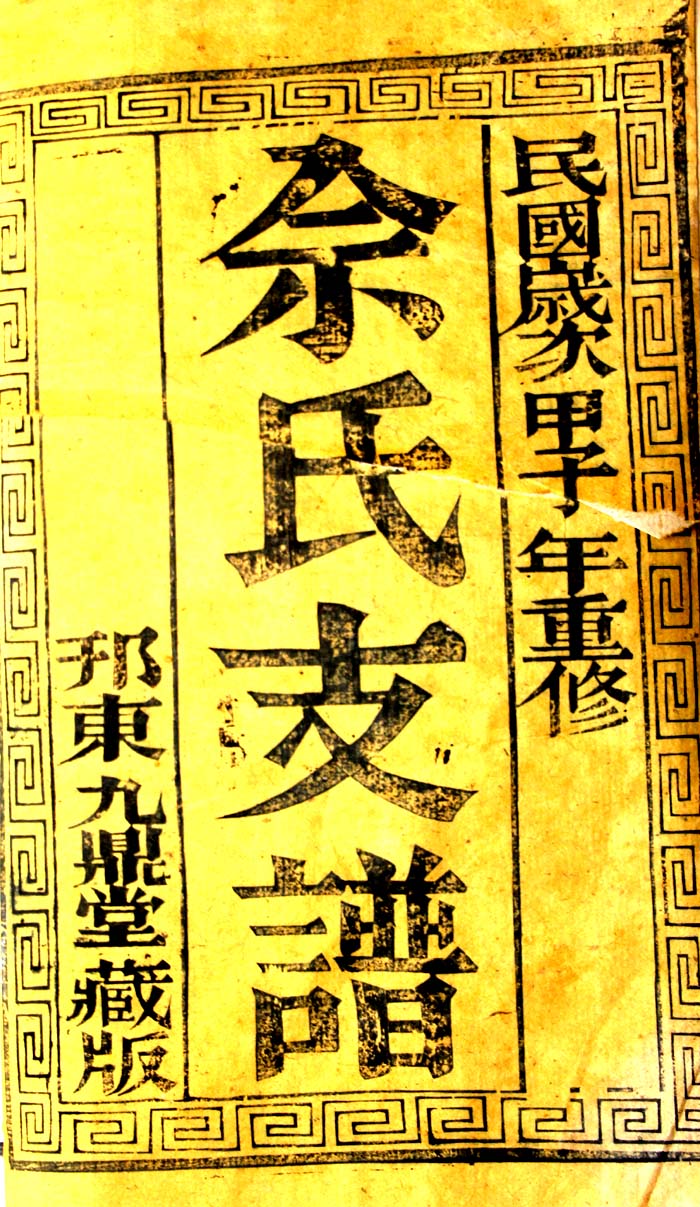 民國歲次甲子年重修
佘氏支譜
邦東九鼎堂藏版